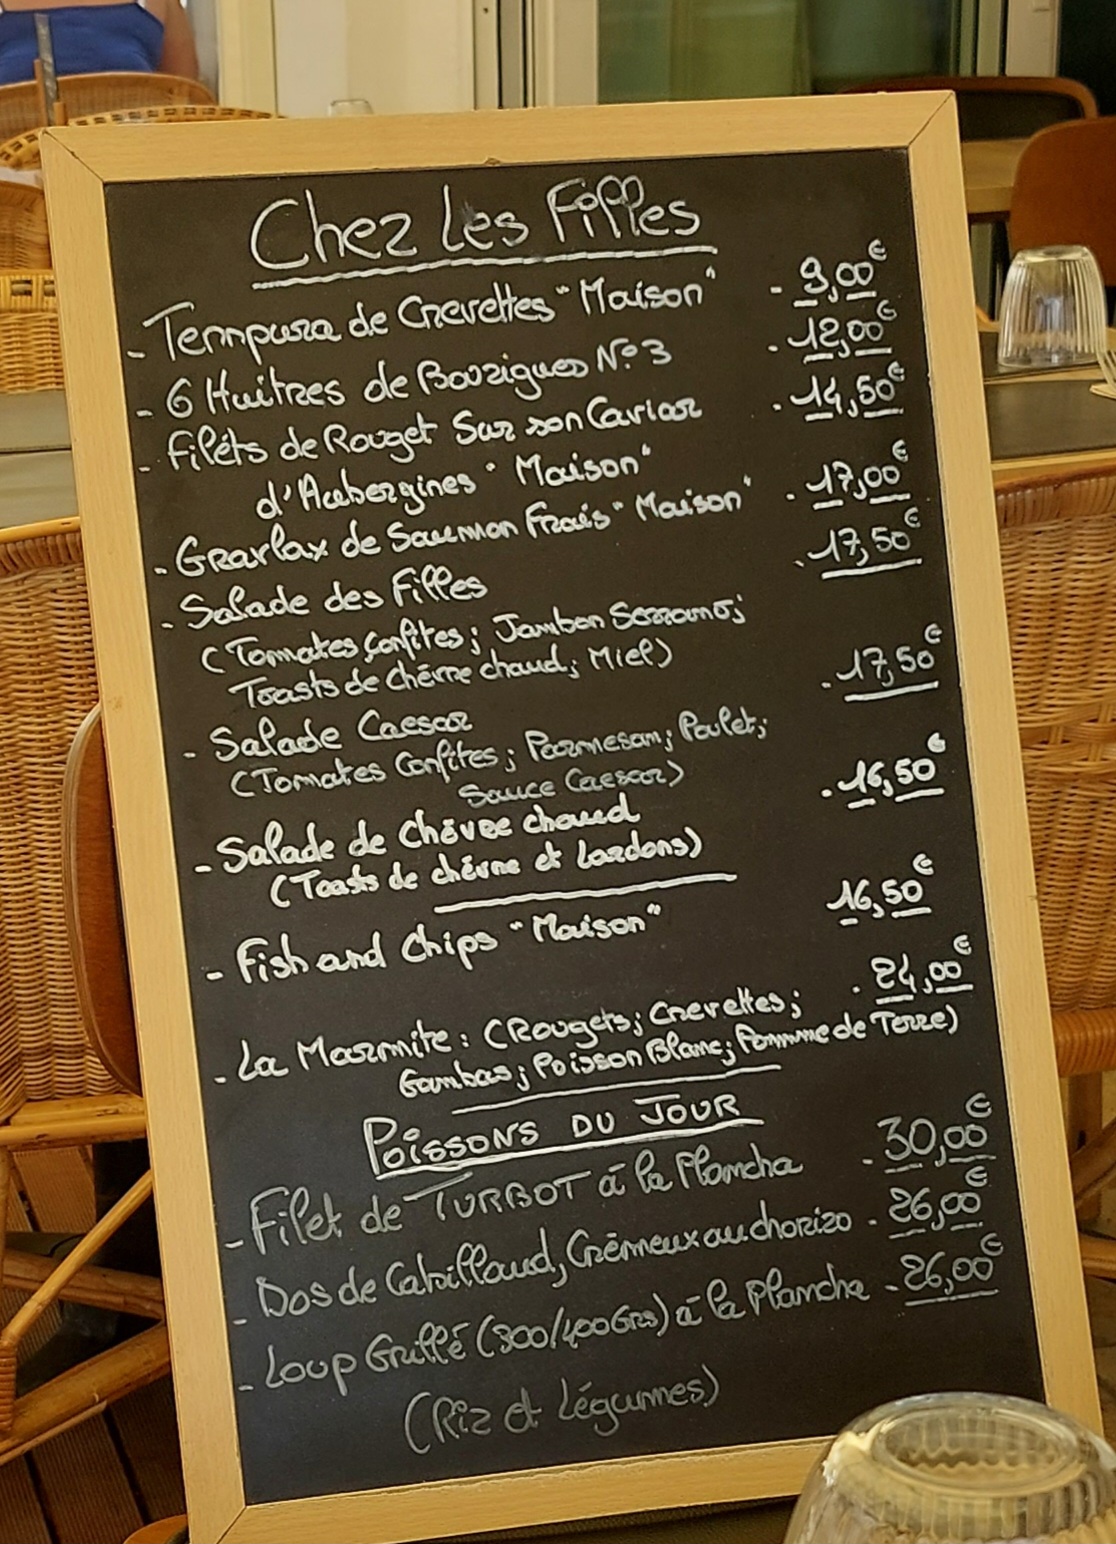 Chez Les Filles
- Tempura de Crevettes "Maison" - 9,00€
- 6 Huîtres de Bouzigues N°3 - 12,00€
- Filéts de Rouget Sur son Caviar - 14,50€
d'Aubergines "Maison"
- Gravlax de Saumon Frais "Maison" - 17,00€
- Salade des Filles - 17,50€
(Tomates confites; Jambon Serrano;
Toasts de chèvre chaud; Miel)
- Salade Caesar - 17,50€
(Tomates Confites; Parmesan; Poulet;
Sauce Caesar)
- Salade de Chèvre chaud - 16,50€
(Toasts de chèvre et Lardons)
- Fish and Chips "Maison" 16,50€
- La Marmite : (Rougets; Crevettes; - 24,00€
Gambas; Poisson Blanc; Pomme de Terre)
POISSONS DU JOUR
- Filet de TURBOT à la Plancha - 30,00€
- Dos de Cabillaud, Crémeux au chorizo - 26,00€
- Loup Grillé (300/400Grs) à la Plancha - 26,00€
(Riz et Légumes)